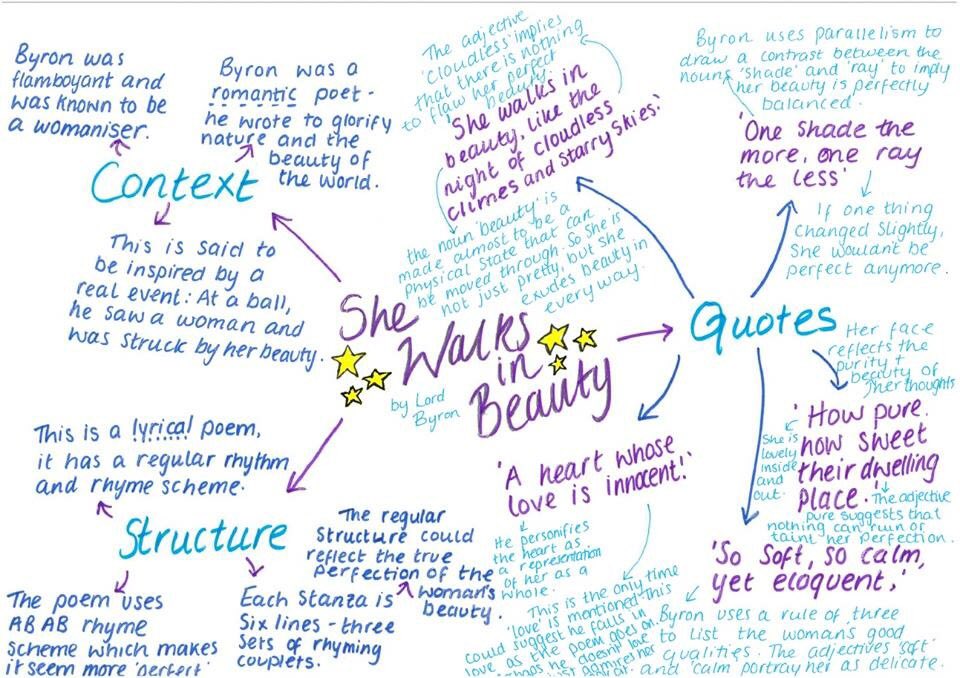 She
Walks
in
Beauty
by Lord
Byron
Context
Byron was
flamboyant and
was known to be
a womaniser.
Byron was a
romantic poet -
he wrote to glorify
nature and the
beauty of
the world.
This is said to
be inspired by a
real event: At a ball,
he saw a woman and
was struck by her beauty.
Structure
This is a lyrical poem,
it has a regular rhythm
and rhyme scheme.
The poem uses
ABAB rhyme
scheme which makes
it seem more 'perfect'
Each stanza is
six lines - three
sets of rhyming
couplets.
The regular
structure could
reflect the true
perfection of the
woman's
beauty.
Quotes
The adjective
'cloudless' implies
that there is nothing
to flaw her perfect
beauty.
'She walks in
beauty, like the
night of cloudless
climes and starry skies.'
the noun 'beauty' is
made almost to be a
physical state that can
be moved through. So she is
not just pretty, but she
exudes beauty in
every way.
Byron uses parallelism to
draw a contrast between the
nouns 'shade' and 'ray' to imply
her beauty is perfectly
balanced.
'One shade the
more, one ray
the less'
If one thing
changed slightly,
She wouldn't be
perfect anymore.
Her face
reflects the
purity +
beauty of
her thoughts
'How pure.
how sweet
their dwelling
place.'
She is
lovely
inside
and
out.
The adjective
pure suggests that
nothing can ruin or
taint her perfection.
'A heart whose
love is innocent!'
He personifies
the heart as
a representation
of her as a
whole.
This is the only time
'love' is mentioned. This
could suggest he falls in
love as the poem goes on.
he doesn't love
admires her
'So soft, so calm,
yet eloquent,'
Byron uses a rule of three
to list the woman's good
qualities. The adjectives 'soft'
and 'calm' portray her as delicate.